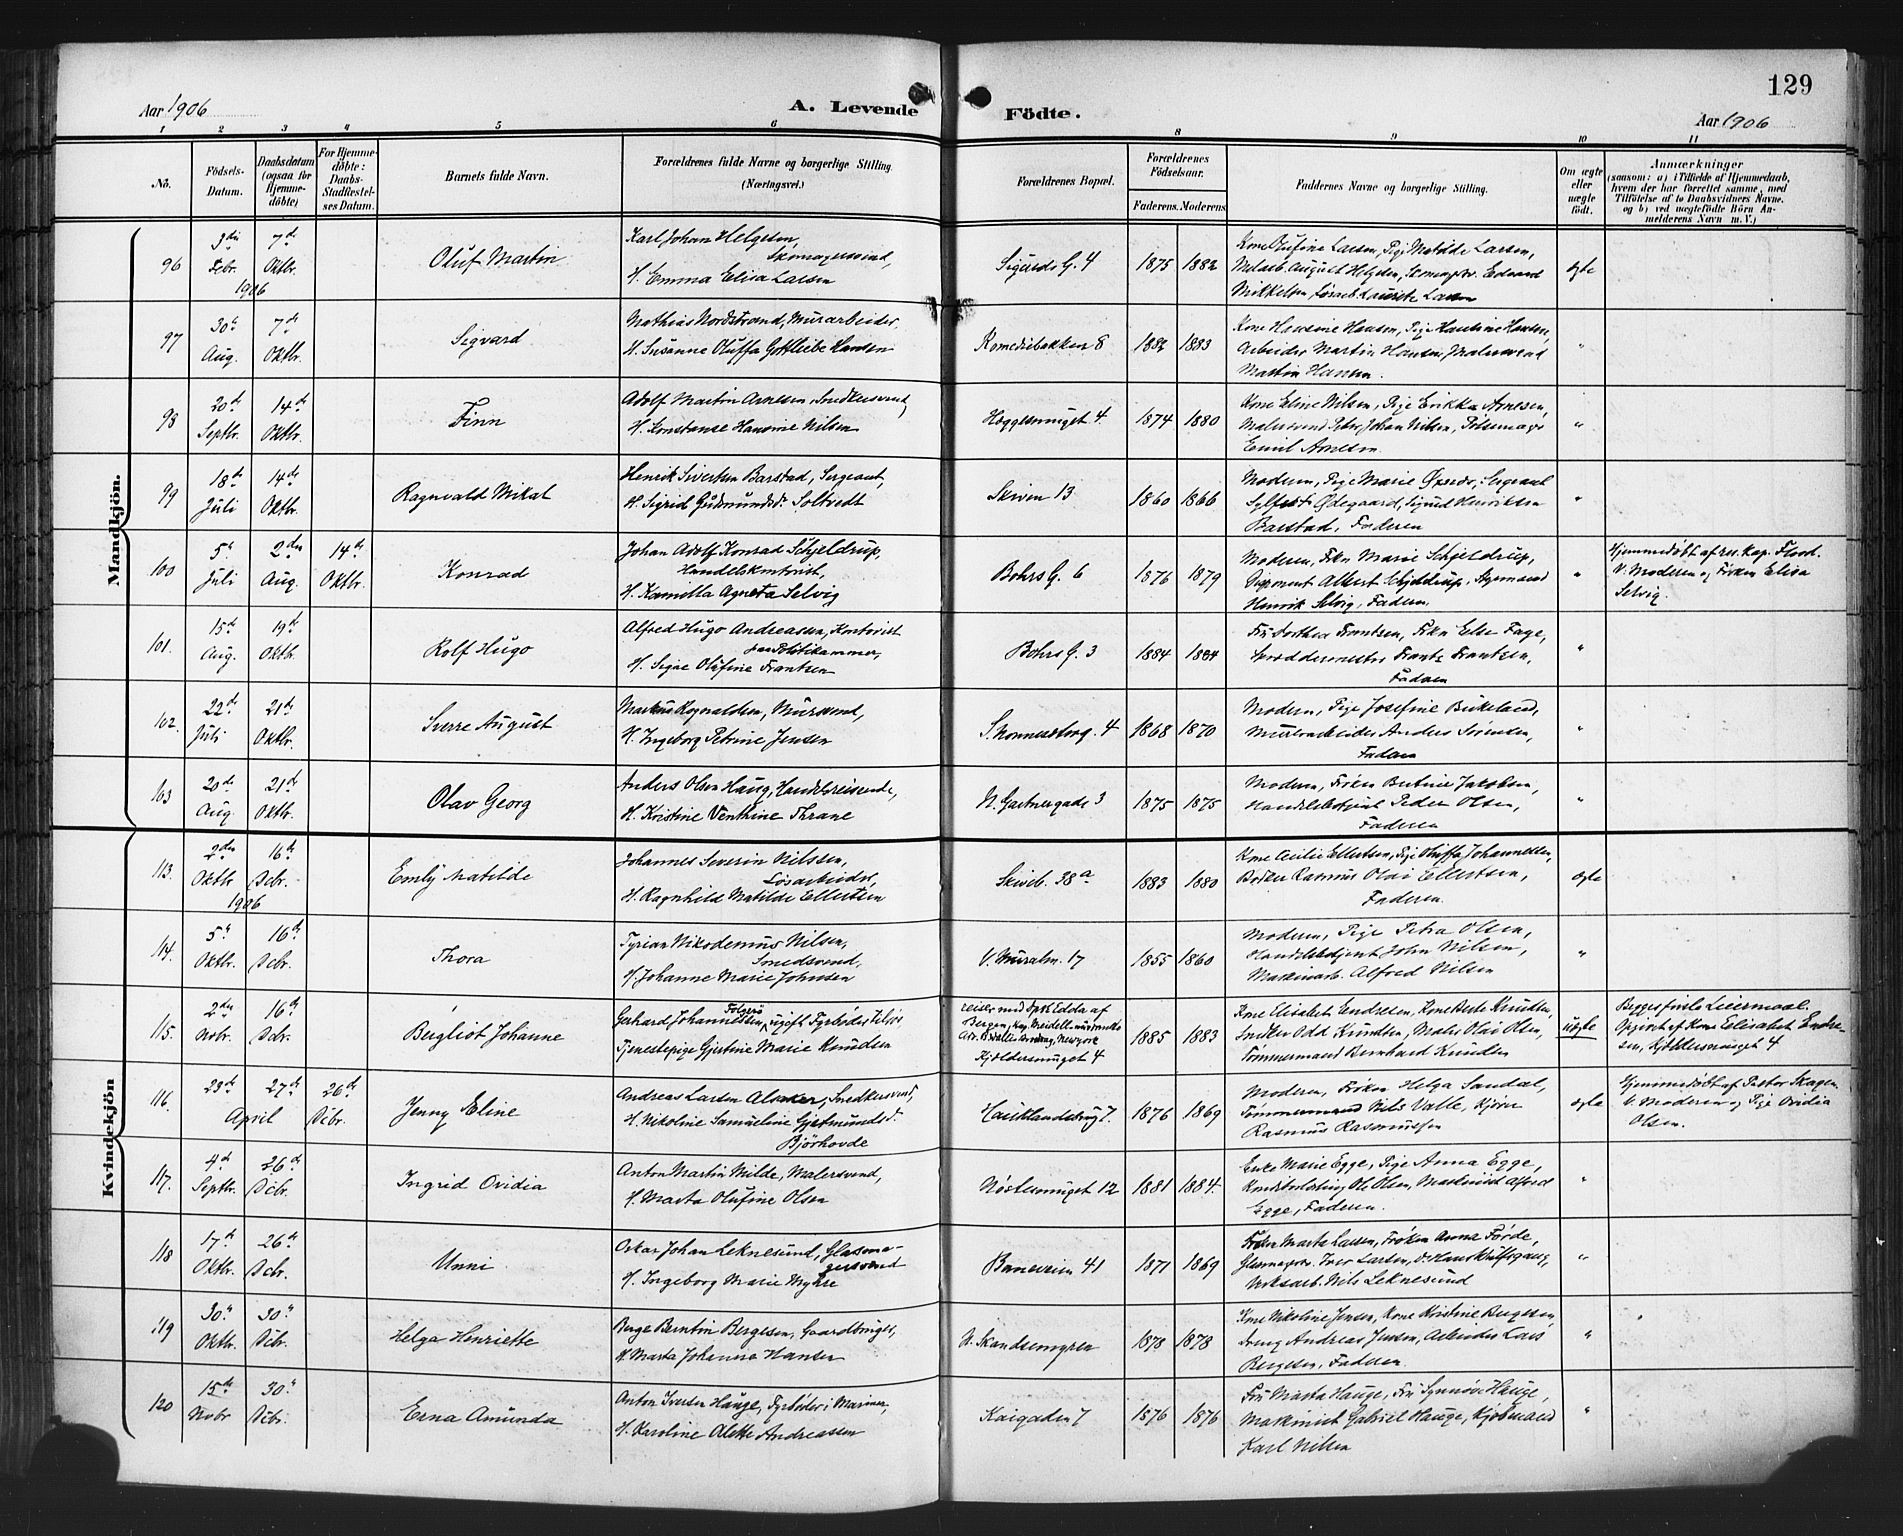 129
Aar 1906
A. Levende Födte.
Aar 1906
1 2 3 4 5 6 8 9 10 11
No.
Födsels-Datum.
Daabsdatum (ogsaa for Hjemme-döbte)
For Hjemme-döbte: Daabs-Stadfestel-ses Datum.
Barnets fulde Navn.
Forældrenes fulde Navne og borgerlige Stilling (Næringsvei.)
Forældrenes Bopæl.
Forældrenes Födselsaar.
Faderens. Moderens.
Faddernes Navne og borgerlige Stilling.
Om ægte eller uægte födt.
Anmærkninger
(saasom: a) i Tilfælde af Hjemmedaab, hvem der har forrettet samme, med Tilföielse af to Daabsvidners Navne, og b) ved uægtefödte Börn Anmelderens Navn m. V.)
Mandkjön.
96 3die Febr. 1906 7de Oktbr.
Oluf Martin
Karl Johan Helgesen,
Skomagersvend,
H. Emma Elisa Larsen
Sigurds G. 4 1875 1882
Kone Olufine Larsen, Pige Matilde Larsen,
August Helgesen, Edvard
Mikkelsen, Løsarb. Laurits Larsen
ægte
97 30te Aug. 7de Oktbr.
Sigvard
Mathias Nordstrand, Murarbeider,
H. Susanne Oluffa Gottliebe Hansen
Komediebakken 8 1882 1883
Kone Hansine Hansen, Pige Hansen,
Arbeider Martin Hansen, Malersvend
Martin Hansen.
"
98 20de Septbr. 14de Oktbr.
Finn
Adolf Martin Arnesen, Snedkersvend,
H. Konstanse Hansine Nilsen
Heggesmuget 4 1874 1880
Kone Eline Nilsen, Pige Erikka Arnesen,
Malersvend Johan Nilsen, Pölsemager
Emil Arnesen
"
99 18de Juli 14de Oktbr.
Ragnvald Mikal
Henrik Sivertsen Barstad, Sergeant,
H. Sigrid Gudmundsd. Soltvedt
Skiven 13 1860 1866
Moderen, Pige Marie, Sergeant
Ødegaard, Sigurd Henriksen
Barstad, Faderen
"
100 5te Juli 2den Aug. 14de Oktbr.
Konrad
Johan Adolf Konrad Schjeldrup,
Handelskontorist,
H. Kamilla Agneta Selvig
Bohrs G. 6 1876 1879
Moderen, Frkn Marie Schjeldrup,
Albert Schjeldrup, Styrmand
Henrik Selvig, Faderen.
"
Hjemmedøbt af res. kap. Flood.
V. Moderen og Frøken Elisa
Selvig.
101. 15de Aug. 19de Oktbr.
Rolf Hugo
Alfred Hugo Andreassen, Kontorist
paa Politikammer,
H. Signe Olufine Frantsen
Bohrs G. 3 1884 1884
Fru Dorthea Frantsen, Frkn Else Fage,
Skreddermester Frants Frantsen,
Faderen
"
102. 22de Juli 21de Oktbr.
Sverre August
Markus Rognaldsen, Mursvend,
H. Ingeborg Petrine Jensen
4 1868 1870
Moderen, Pige Josefine Birkeland,
Murerarbeider Anders Sörensen,
Faderen
"
103 20de Aug. 21de Oktbr.
Olav Georg
Anders Olsen Haug, Handelsreisende,
H. Kristine Venthine Thrane
N. Gartnergade 3 1875 1875
Moderen, Frøken Jakobsen,
Handelsbetjent Peder Olsen,
Faderen
"
Kvindekjön
113. 2den Oktbr. 1906 16de Dcbr.
Emly Matilde
Johannes Severin Nilssen,
Løsarbeider,
H. Ragnhild Matilde Ellertsen
Skiveb. 38a 1883 1880
Kone Cecilie Ellertsen, Pige Oluffa Johannessen,
Bødker Rasmus Olai Ellertsen,
Faderen.
ægte
114. 5te Oktbr. 16de Dcbr.
Thora
Tyrian Nikodemus Nilsen,
Smedsvend,
H. Johanne Marie Johnsen
V. Muralm. 17 1855 1860
Moderen, Pige Petra Olsen,
Handelsbetjent John Nilsen,
Maskinarb. Alfred Nilsen
"
115. 2den Novbr. 16de Dcbr.
Bergliot Johanne
Gerhard Johannessen Folgerö, ugift Fyrbøder tilsjøs,
Tjenestepige Gjertine Marie Knudsen
reiser med Dpsk. Edda af
Bergen, Kap. Meidell
Newyork
Kjeldersmuget 4
1885 1883
Kone Elisabet Endresen, Kone Berte Knudsen,
Snedker Odd Knudsen, Maler Olai Olsen,
Tømmermand Bernhard Knudsen
uægte
Begges første Leiermaal.
Opgivet af Kone Elisabet Endre-
sen, Kjeldersmuget 4
116. 23de April 27de 26de Dcbr.
Jenny Eline
Andreas Larsen Alsaker, Snedkersvend,
H. Nikoline Samueline Gjertmundsd.
Bjørhovde
Haukelandsvei 7. 1876 1869
Moderen, Frøken Helga Sandal,
Tømmermand Nils Valle, Kjører
Rasmus Rasmussen
ægte
Hjemmedøbt af Pastor Skagen
V. Moderen og Pige Ovidia
Olsen.
117. 4de Septbr. 26de Dcbr.
Ingrid Ovidia
Anton Martin Milde, Malersvend,
H. Marta Olufine Olsen
Nøstesmuget 12 1881 1884.
Enke Marie Egge, Pige Anna Egge,
Ole Olsen, Maskinist Alfred
Egge, Faderen.
"
118 17de Oktbr. 26de Dcbr.
Unni
Oskar Johan Leknesund, Glasma-
gersvend
H. Ingeborg Marie Myhre
Baneveien 41 1871 1869
Frøken Marta Larsen, Frøken Anna Førde,
Glasmager Iver Larsen,
Verksarb. Nils Leknesund
"
119 30te Oktbr. 30te Dcbr.
Helga Henriette
Berge Berntin Bergesen, Gaardbruger,
H. Marta Johanna Hansen
N. Skandsemyren 1878 1878
Kone Nikoline Jensen, Kone Kristine Bergesen,
Dreng Andreas Jensen, Arbeider Lars
Bergesen, Faderen.
"
120 15de Novbr 30te Dcbr.
Erna Amunda
Anton Iversen Hauge, Fyrbøder i Marinen,
H. Karoline Olette Andreassen
Kaigaden 7 1876 1876
Fru Marta Hauge, Fru Synnøve Hauge,
Maskinist Gabriel Hauge, Kjøbmand
Karl Nilsen
"